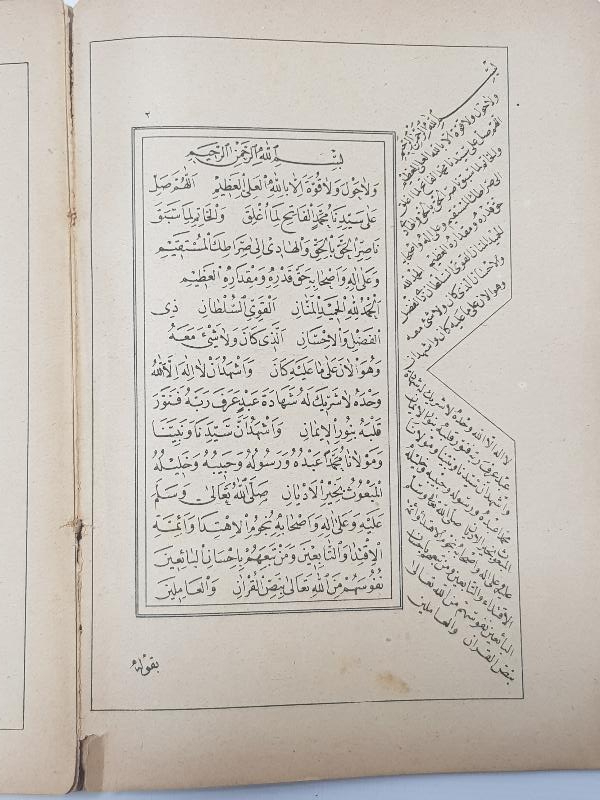 ٢
بسم الله الرحمن الرحيم
وَلَاحَوْلَ وَلَا قُوَّةَ اِلَّا بِاللهِ الْعَلِىِّ الْعَظِيْمِ اَللّٰهُمَّ صَلِّ
عَلٰى سَيِّدِنَا مُحَمَّدٍ الْفَاتِحِ لِمَا اُغْلِقَ وَالْخَاتِمِ لِمَا سَبَقَ
نَاصِرِ الْحَقِّ بِالْحَقِّ وَالْهَادِى اِلٰى صِرَاطِكَ الْمُسْتَقِيْمِ
وَعَلٰى اٰلِهِ وَاَصْحَابِهِ حَقَّ قَدْرِهِ وَمِقْدَارِهِ الْعَظِيْمِ
اَلْحَمْدُ لِلّٰهِ الْحَمِيْدِ الْمَنَّانِ اَلْقَوِىِّ السُّلْطَانِ ذِى
الْفَضْلِ وَالْاِحْسَانِ اَلَّذِى كَانَ وَلَا شَىْءَ مَعَهُ
وَهُوَ الْاٰنَ عَلٰى مَا عَلَيْهِ كَانَ وَاَشْهَدُ اَنْ لَا اِلٰهَ اِلَّا اللهُ
وَحْدَهُ لَا شَرِيْكَ لَهُ شَهَادَةَ عَبْدٍ عَرَفَ رَبَّهُ فَنَوَّرَ
قَلْبَهُ بِنُوْرِ الْاِيْمَانِ وَاَشْهَدُ اَنَّ سَيِّدَنَا وَنَبِيَّنَا
وَمَوْلَانَا مُحَمَّدًا عَبْدُهُ وَرَسُوْلُهُ وَحَبِيْبُهُ وَخَلِيْلُهُ
الْمَبْعُوْثُ بِخَيْرِ الْاَدْيَانِ صَلَّى اللهُ تَعَالٰى وَسَلَّمَ
عَلَيْهِ وَعَلٰى اٰلِهِ وَاَصْحَابِهِ نُجُوْمِ الْاِهْتِدَاءِ وَاَئِمَّةِ
الْاِقْتِدَاءِ وَالتَّابِعِيْنَ وَمَنْ تَبِعَهُمْ بِاِحْسَانٍ الْبَائِعِيْنَ
نُفُوْسَهُمْ مِنَ اللهِ تَعَالٰى بِنَصِّ الْقُرْاٰنِ وَالْعَامِلِيْنَ
بقوله
بسم الله الرحمن الرحيم
ولاحول ولا قوة الا بالله العلى العظيم
اللهم صل على سيدنا محمد الفاتح لما اغلق
والخاتم لما سبق ناصر الحق بالحق والهادى
الى صراطك المستقيم وعلى اله واصحابه
حق قدره ومقداره العظيم الحمد لله
الحميد المنان القوى السلطان ذى الفضل
والاحسان الذى كان ولا شئ معه
وهو الان على ما عليه كان واشهد ان
لا اله الا الله وحده لا شريك له شهادة
عبد عرف ربه فنور قلبه بنور الايمان
واشهد ان سيدنا ونبينا ومولانا
محمدا عبده ورسوله وحبيبه وخليله
المبعوث بخير الاديان صلى الله تعالى وسلم
عليه وعلى اله واصحابه نجوم الاهتداء وائمة
الاقتداء والتابعين ومن تبعهم باحسان
البائعين نفوسهم من الله تعالى
بنص القران والعاملين